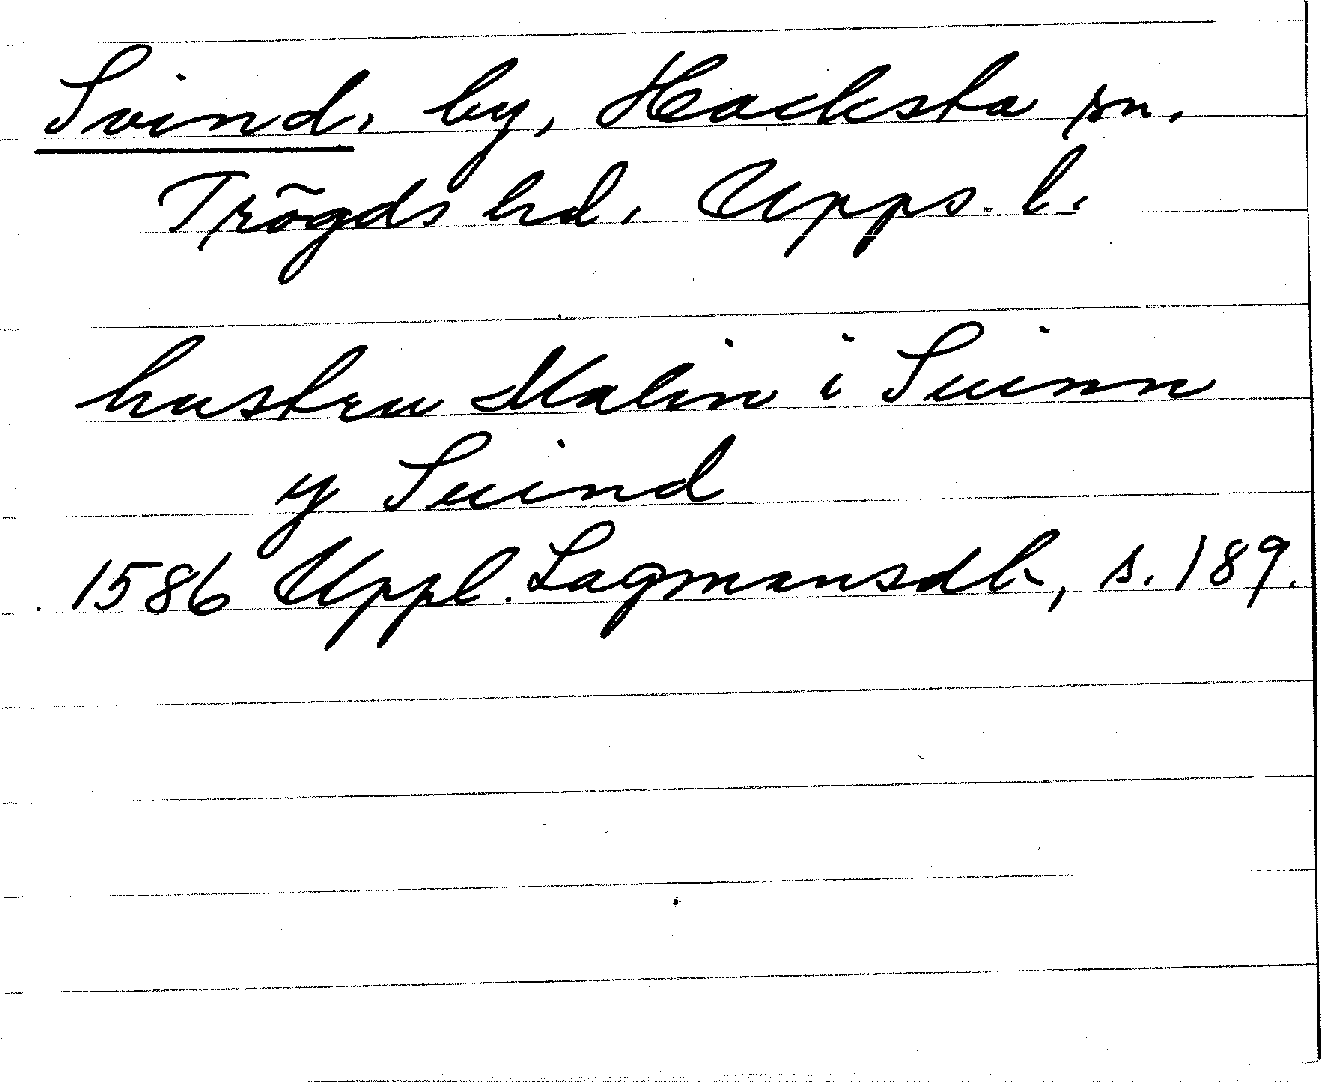 Svind, by, Hacksta sn.
Trögds hd. Upps. l.
hustru Malin i Suinn
y Suind
1586 Uppl. Lagmansdb, s. 189.